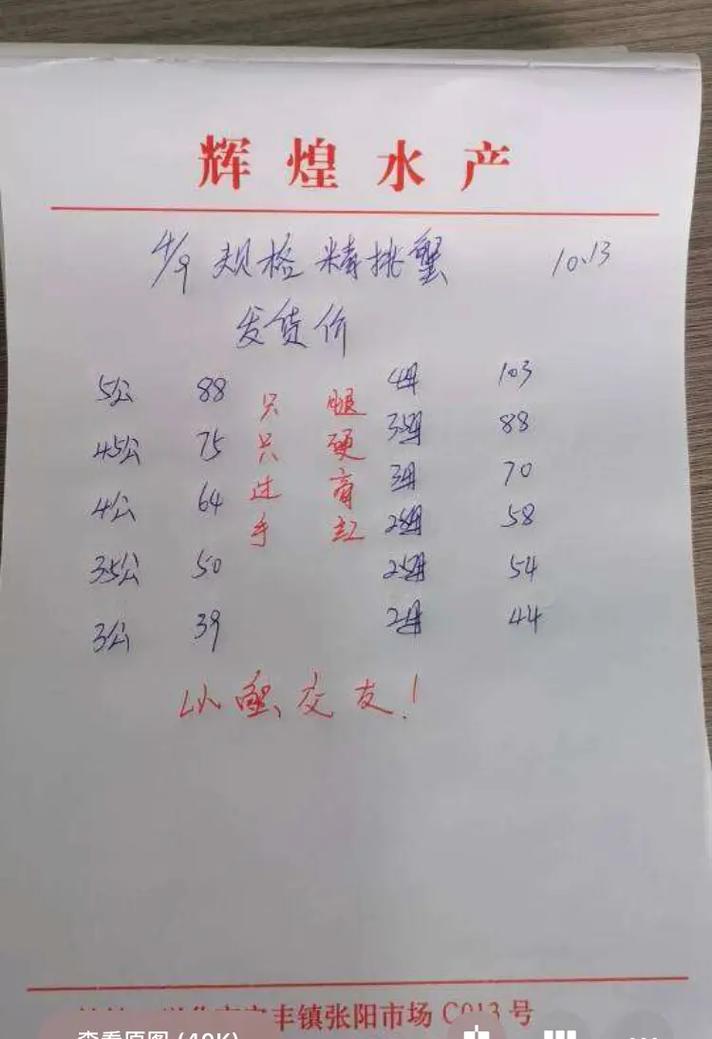 辉煌水产
4/9 规格精挑蟹 10.13
发货价
5公 88
45公 75
4公 64
35公 50
3公 39
只只过手
腿硬膏红
4母 103
35母 88
3母 70
28母 58
25母 54
2母 44
以蟹交友！
丰镇张阳市场 C013 号
查看原图 (40K)